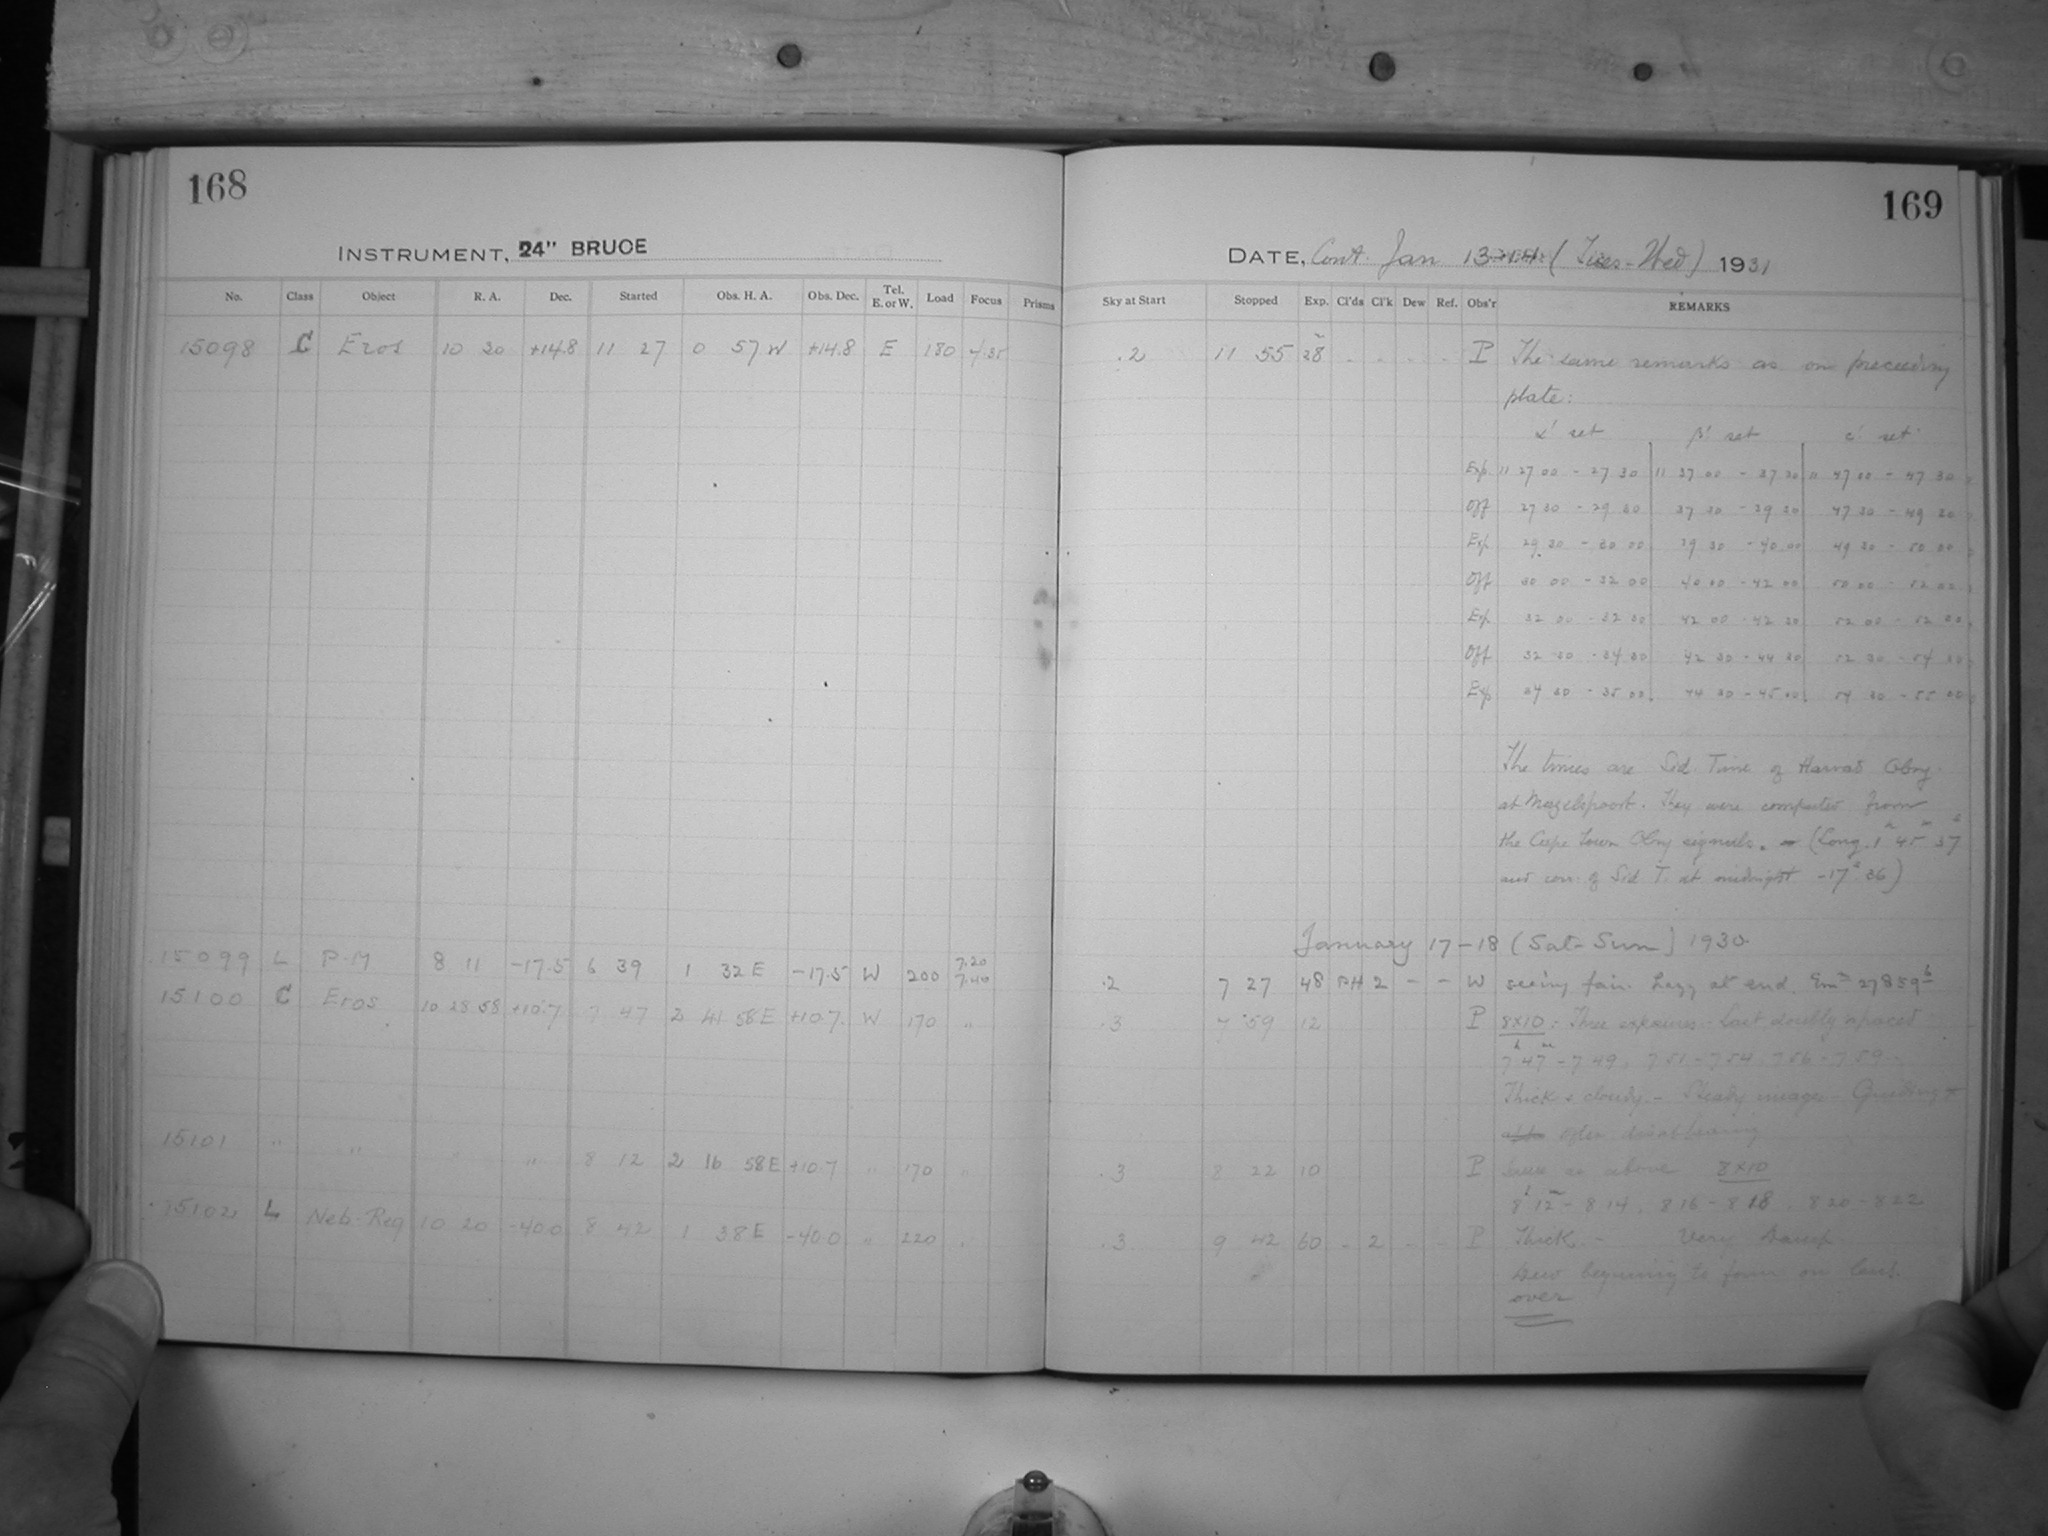 168
169
INSTRUMENT, 24" BRUCE
DATE, Cont. Jan 13-14 (Tues-Wed) 1931
No. Class Object R. A. Dec. Started Obs. H. A. Obs. Dec. Tel. E. or W. Load Focus Prisms Sky at Start Stopped Exp. Cl'ds Cl'k Dew Ref. Obs'r REMARKS
15098 C Eros 10 20 +14.8 11 27 0 57 W +14.8 E 180 .2 11 55 28 . . . . P The same remarks as on preceeding
plate:
α' set β' set c' set
Exp. 11 27 00 - 27 30 11 37 00 - 37 30 11 47 00 - 47 30
Off 27 30 - 29 30 37 30 - 39 30 47 30 - 49 30
Exp 29 30 - 30 00 39 30 - 40 00 49 30 - 50 00
Off 30 00 - 32 00 40 00 - 42 00 50 00 - 52 00
Exp. 32 00 - 32 30 42 00 - 42 30 52 00 - 52 30
Off 32 30 - 34 30 42 30 - 44 30 52 30 - 54 30
Exp 34 30 - 35 00 44 30 - 45 00 54 30 - 55 00
The times are Sid. Time of Harvard Obsy.
at Mazelspoort. They were computed from
the Cape Town Obsy signals. - (Long. 1h 45m 37s
and corr. of Sid T. at midnight -17s.36)
January 17-18 (Sat-Sun) 1930
15099 L P.M 8 11 -17.5 6 39 1 32 E -17.5 W 200 7.20 7.40 .2 7 27 48 PH 2 - - W seeing fair. Hazy at end.
15100 C Eros 10 28 58 +10.7 7 47 2 41 58 E +10.7 W 170 " .3 7 59 12 P 8x10: Three exposures - Last doubly spaced
7h 47m - 7 49, 7 51 - 7 54, 7 56 - 7 59
Thick & cloudy - Steady images - Guiding *
often disappearing
15101 " " " " 8 12 2 16 58 E +10.7 " 170 " .3 8 22 10 P Same as above 8x10
8h 12m - 8 14, 8 16 - 8 18, 8 20 - 8 22
15102 L Neb. Reg 10 20 -40.0 8 42 1 38 E -40.0 " 220 . .3 9 42 60 - 2 - - P Thick - Very damp
Dew beginning to form on lens
over